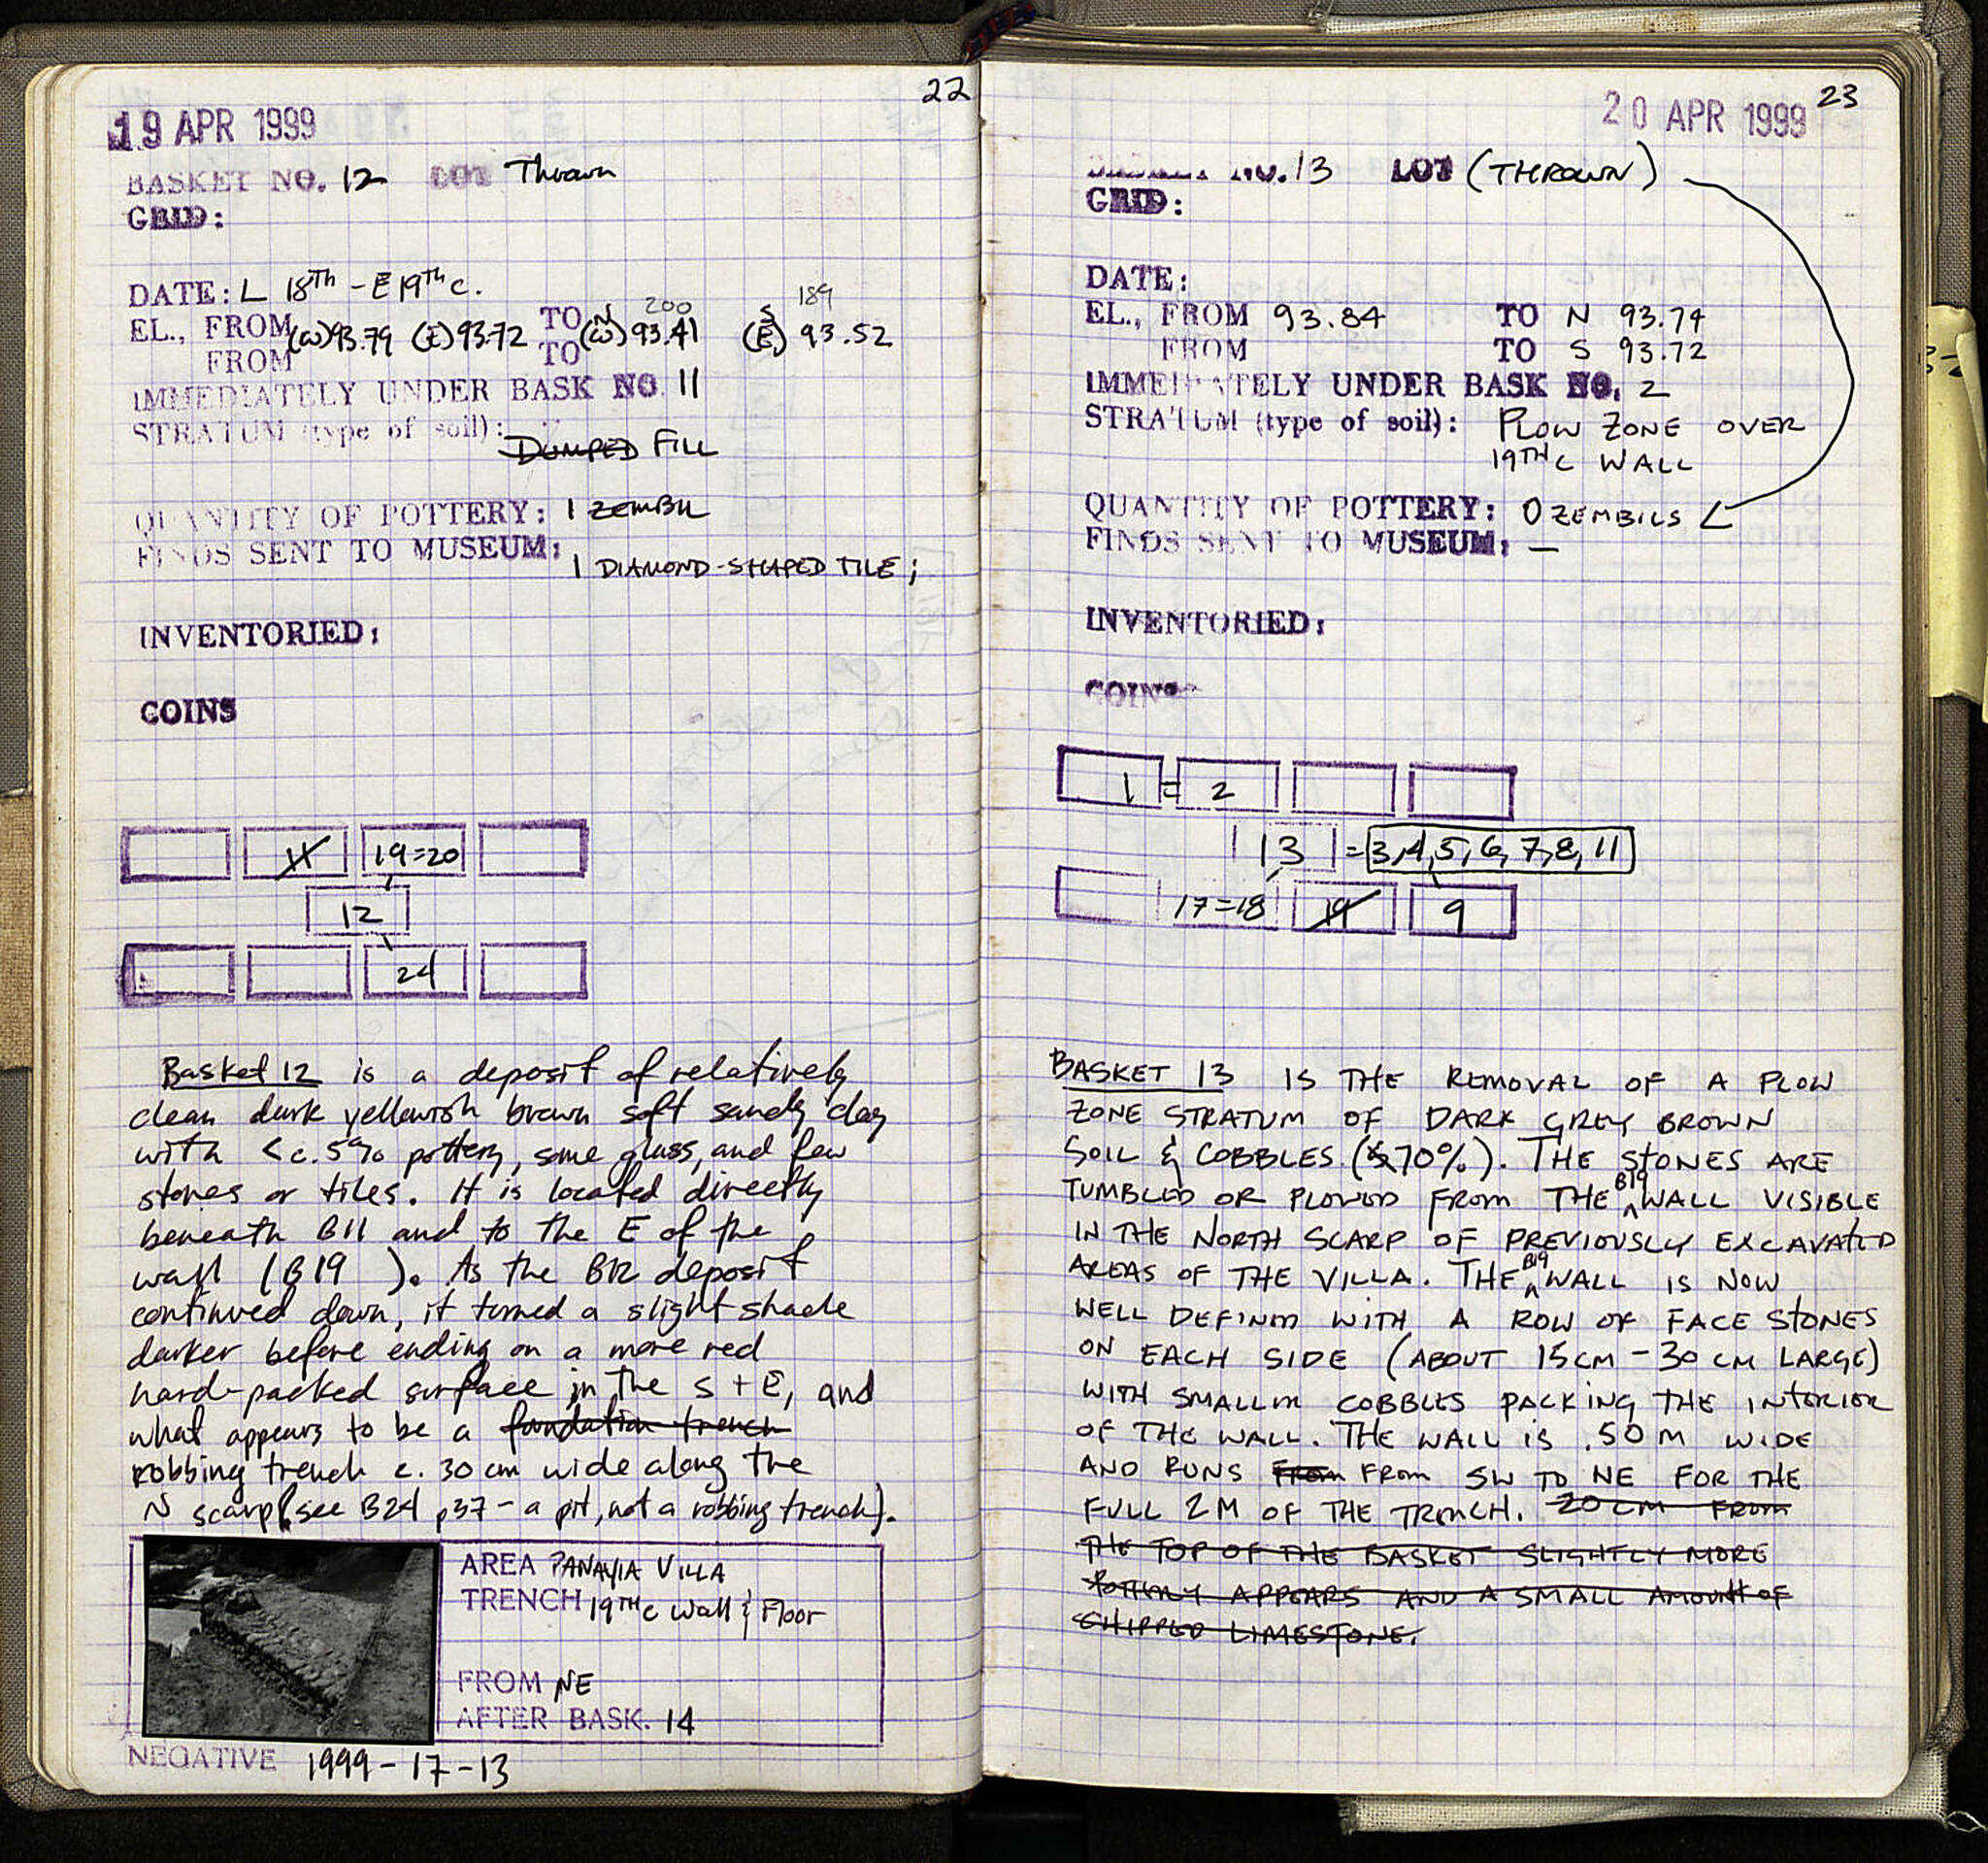 22
19 APR 1999
BASKET NO. 12 LOT Thrown
GRID:
DATE: L 18TH - E 19TH c.
200 189
EL., FROM (W) 93.79 (E) 93.72 TO N (W) 93.41 S (E) 93.52
FROM TO
IMMEDIATELY UNDER BASK NO. 11
STRATUM (type of soil):
DUMPED FILL
QUANTITY OF POTTERY: 1 ZEMBIL
FINDS SENT TO MUSEUM: 1 DIAMOND-SHAPED TILE;
INVENTORIED:
COINS
11 19=20
12
24
Basket 12 is a deposit of relatively
clean dark yellowish brown soft sandy clay
with < c. 5% pottery, some glass, and few
stones or tiles. It is located directly
beneath B11 and to the E of the
wall (B19 ). As the B12 deposit
continued down, it turned a slight shade
darker before ending on a more red
hard-packed surface in the S + E, and
what appears to be a foundation trench
robbing trench c. 30 cm wide along the
N scarp (see B24 p37 - a pit, not a robbing trench).
AREA PANAYIA VILLA
TRENCH 19TH c Wall & Floor
FROM NE
AFTER BASK. 14
NEGATIVE 1999-17-13
23
20 APR 1999
BASKET NO. 13 LOT (THROWN)
GRID:
DATE:
EL., FROM 93.84 TO N 93.74
FROM TO S 93.72
IMMEDIATELY UNDER BASK NO. 2
STRATUM (type of soil): PLOW ZONE OVER
19TH C WALL
QUANTITY OF POTTERY: 0 ZEMBILS
FINDS SENT TO MUSEUM: —
INVENTORIED:
COINS
1 = 2
13 = 3,4,5,6,7,8,11
17=18 14 9
BASKET 13 IS THE REMOVAL OF A PLOW
ZONE STRATUM OF DARK GREY BROWN
SOIL & COBBLES (70%). THE STONES ARE
TUMBLED OR PLOWED FROM THE B19 WALL VISIBLE
IN THE NORTH SCARP OF PREVIOUSLY EXCAVATED
AREAS OF THE VILLA. THE B19 WALL IS NOW
WELL DEFINED WITH A ROW OF FACE STONES
ON EACH SIDE (ABOUT 15 CM - 30 CM LARGE)
WITH SMALLER COBBLES PACKING THE INTERIOR
OF THE WALL. THE WALL IS .50 M WIDE
AND RUNS FROM FROM SW TO NE FOR THE
FULL 2 M OF THE TRENCH. 20 CM FROM
THE TOP OF THE BASKET SLIGHTLY MORE
POTTERY APPEARS AND A SMALL AMOUNT OF
CHIPPED LIMESTONE.